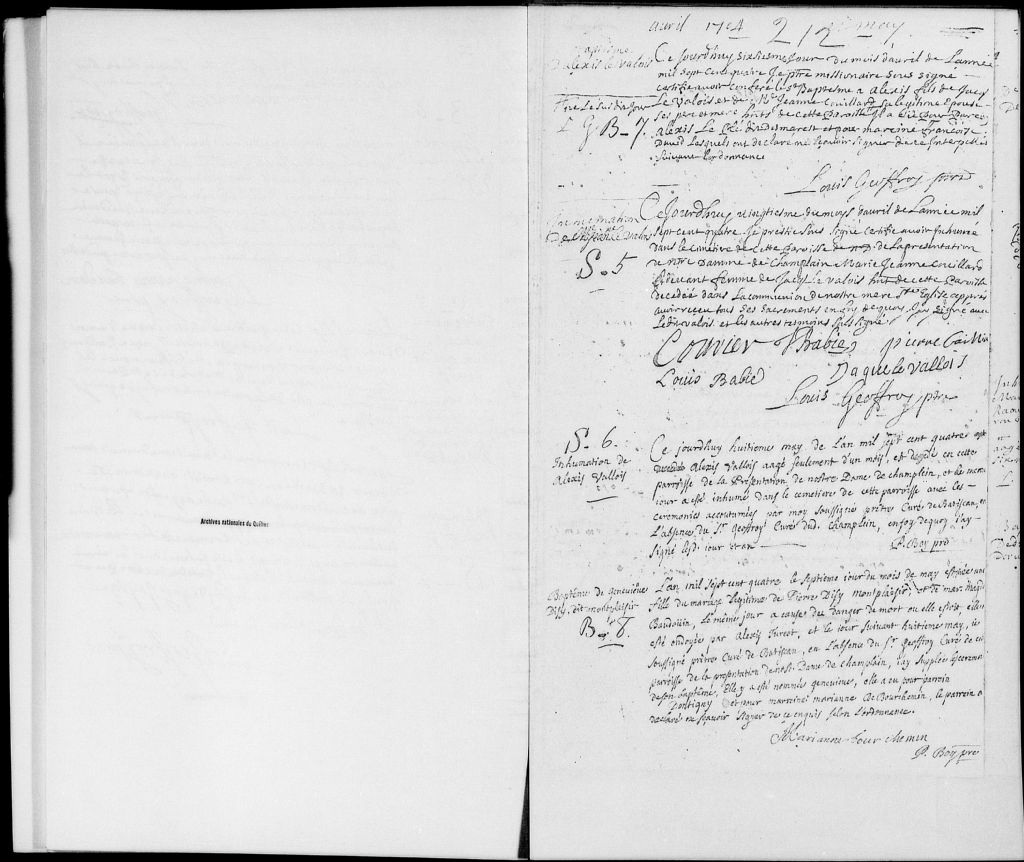 Archives nationales du Québec
avril 1704 212 may
Baptême
D'alexis le valois
Ce Jourdhuy sixiesme Jour du mois d'avril de Lannée
mil sept cent quatre Je ptre missionaire sous signé
certifie avoir conferé le St Baptesme a Alexis fils de Jacq
Le Valois et de Jeanne Couillard sa legitime Epouse
Ses pere et mere hnts de cette Paroisse
B-7.
Alexis Le desmarest et pour mareine Françoise
David Lesquels ont declaré ne scavoir signer de ce Interpellés
Suivant Lordonnance
Louis Geoffroy ptre
Inhumation
S. 5
Ce Jourdhuy vingtiesme du moys d'avril de Lannée mil
sept cent quatre Je prestre sous signé certifie avoir Inhumée
dans le cimetiere de cette Paroisse de la presentation
de nore Damme de Champlain Marie Jeanne Couillard
Cydevant femme de Jacq le valois hnt de cette Paroisse
decedée dans La communion de nostre mere ste Eglise appres
avoir receu tous Ses Sacrements en foy de quoy Jay signé avec
Ledit valois et les autres tesmoins sous signé
Courier Babie Pierre
Louis Babie Jaque le vallois
Louis Geoffroy ptre
S. 6.
Inhumation de
Alexis Vallois
Ce jourdhuy huitieme may de l'an mil sept cent quatre est
decedé Alexis Vallois aagé seulement d'un mois, et decedé en cette
parroisse de la Presentation de nostre Dame de champlein, et le meme
jour a esté inhumé dans le cemetiere de cette parroisse avec les
ceremonies accoutumées par moy soussigné prêtre Curé de Batiscan, en
L'absence du Sr. Geoffroy Curé dud. champlein, en foy de quoy j'ay
signé lesd. jour et an P. Boy pre
Baptême de genevieve
Disy dit montplaisir
B. 8.
L'an mil sept cent quatre le septieme jour du mois de may est née une
fille du mariage legitime de Pierre Disy monplaisir, et de mar. Magd.
Baudoüin, le même jour a cause du danger de mort ou elle estoit, elle
esté ondoyée par Alexis Turcot, et le jour suivant huitieme may, je
soussigné prêtre Curé de Batiscan, en l'absence du Sr. geoffroy Curé de cette
parroisse de la presentation de nost. Dame de champlein, j'ay supplée les cerem.
de son baptême, Elle y a esté nommée genevieve, elle a eu pour parein
Pontigny et pour marreine marianne de Bourchemin, le parrein a
declaré ne sçavoir signer de ce enquis selon l'ordonnance.
Marianne bour chemin
P. Boy pre